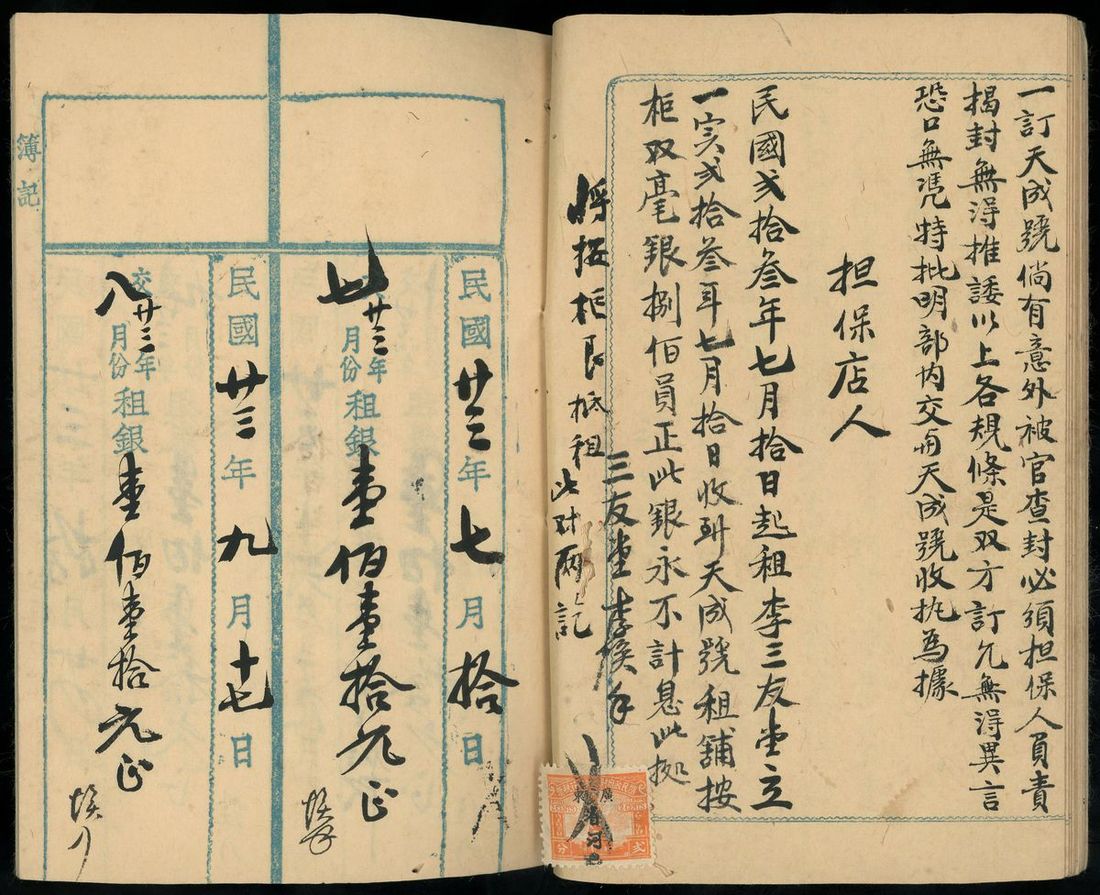 一訂天成號倘有意外被官查封必須担保人員責
揭封無淂推諉以上各規條是双方訂允無淂異言
恐口無凭特批明部內交与天成號收执為據
担保店人
民國弍拾叁年七月拾日起租李三友堂立
一实弍拾叁年七月拾日收到天成號租舖按
柜双毫銀捌佰員正此銀永不計息此拠
三友堂李俟手
将按柜艮抵租
此对両訖
廣東
弍分
民國廿三年七月拾日
廿三年七月份租銀壹佰壹拾元正
民國廿三年九月十七日
交廿三年八月份租銀壹佰壹拾元正
簿記